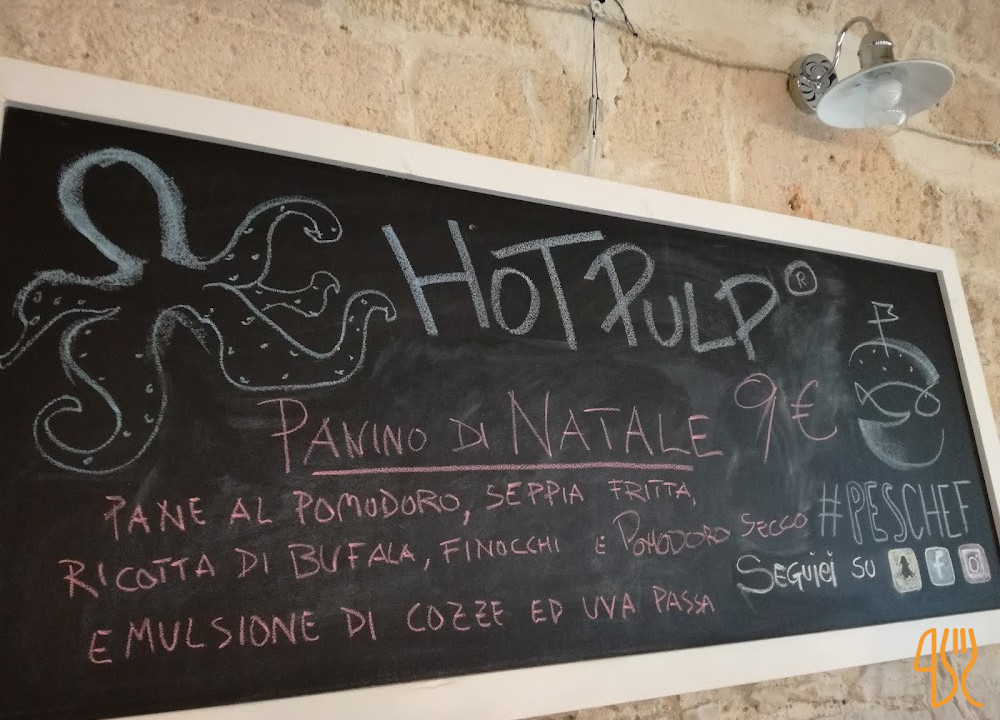 HOT PULP ®
PANINO DI NATALE 9 €
PANE AL POMODORO, SEPPIA FRITTA,
RICOTTA DI BUFALA, FINOCCHI E POMODORO SECCO
EMULSIONE DI COZZE ED UVA PASSA
#PESCHEF
SEGUICI SU